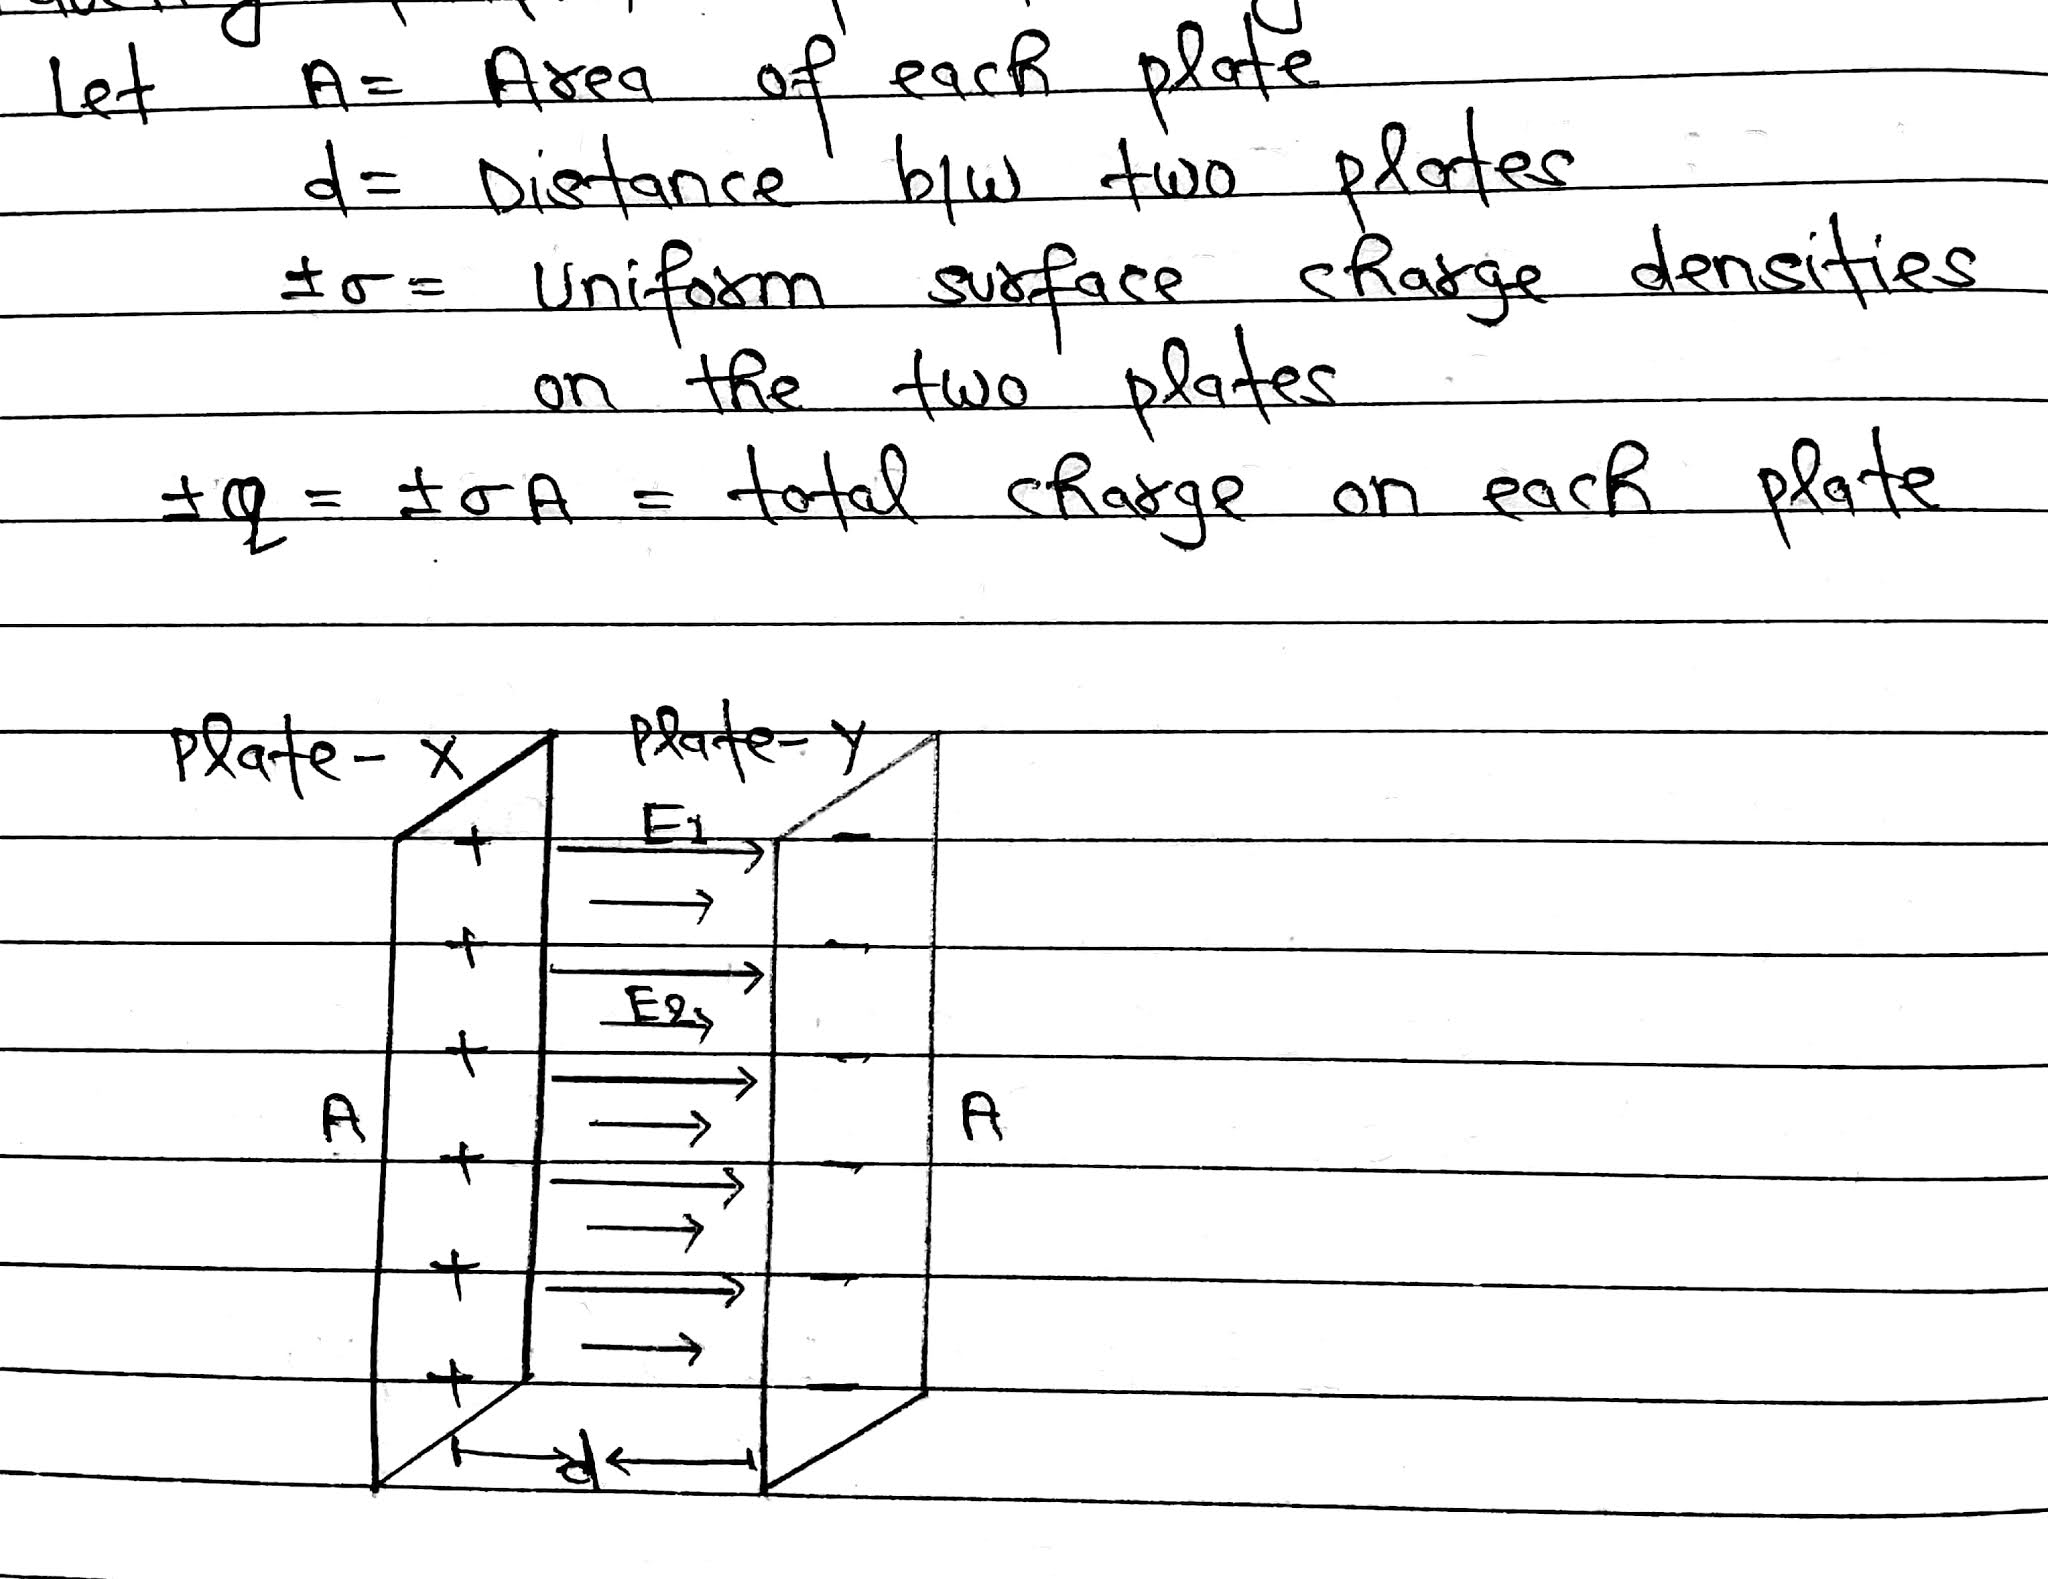 Let A = Area of each plate
d = Distance b/w two plates
±σ = Uniform surface charge densities
on the two plates
±q = ±σA = total charge on each plate
Plate-X Plate-Y
E1
+ -
+ -
E2
+ -
A A
+ -
+ -
+ -
d